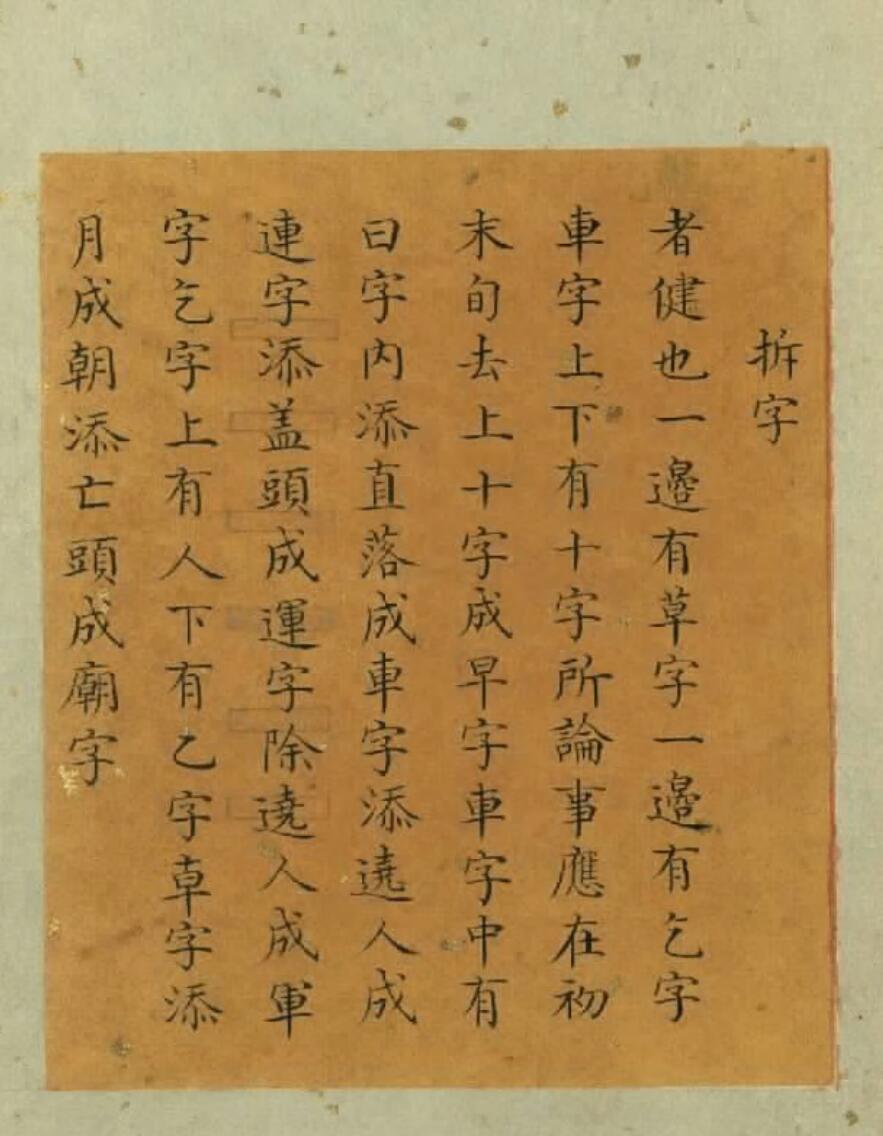 拆字
者健也一邉有草字一邉有乞字
車字上下有十字所論事應在初
末旬去上十字成早字車字中有
曰字内添直落成車字添遶人成
連字添盖頭成運字除遶人成軍
字乞字上有人下有乙字𠦝字添
月成朝添亡頭成廟字